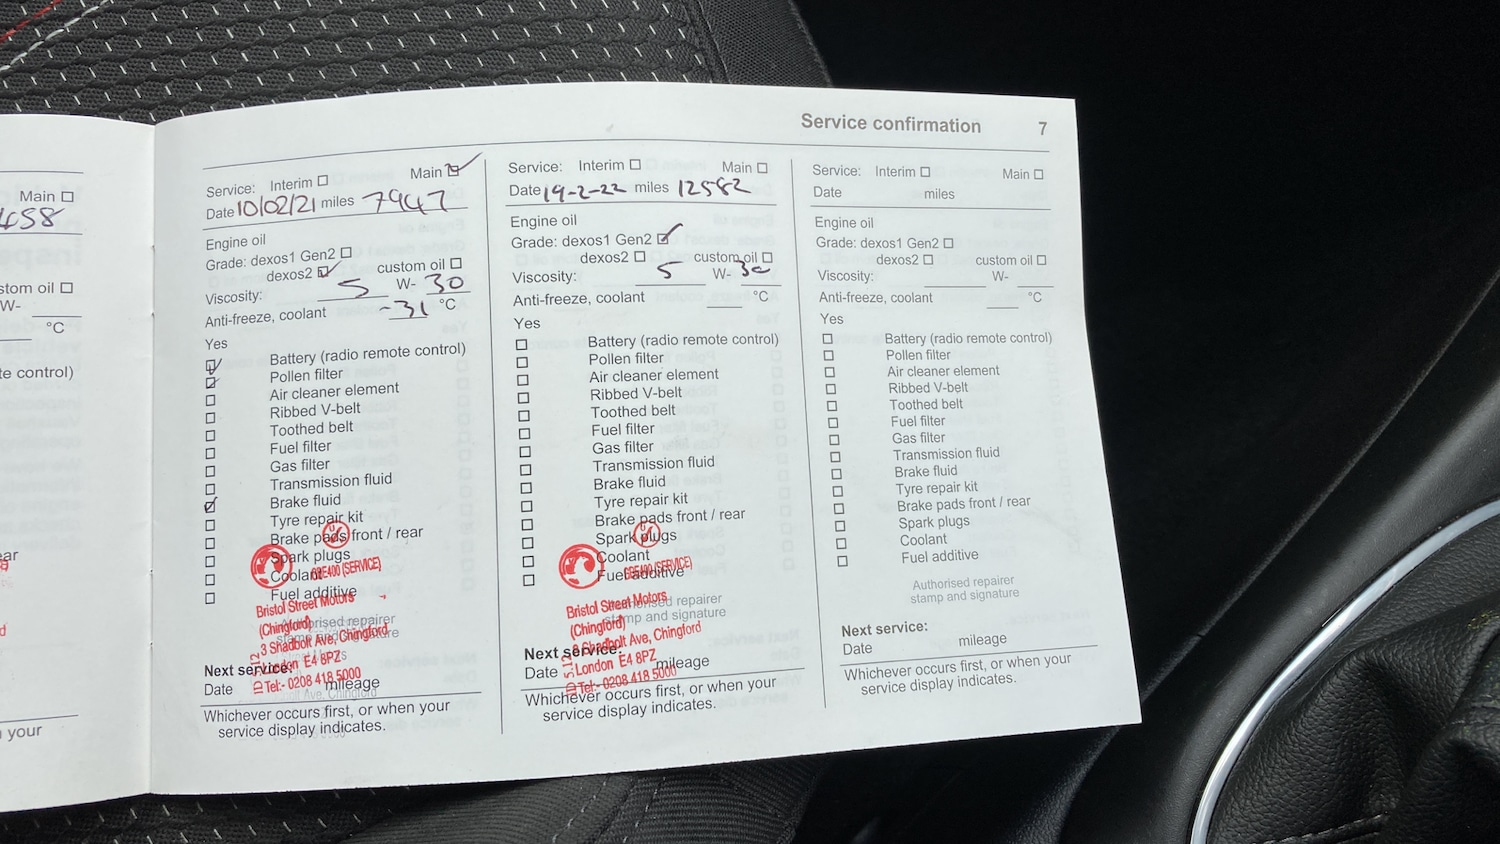 Service confirmation 7
Main
458
stom oil
W-
°C
te control)
ear
n your
Service: Interim Main
Date 10/02/21 miles 7947
Engine oil
Grade: dexos1 Gen2
dexos2 custom oil
Viscosity: 5 W- 30
Anti-freeze, coolant -31 °C
Yes
Battery (radio remote control)
Pollen filter
Air cleaner element
Ribbed V-belt
Toothed belt
Fuel filter
Gas filter
Transmission fluid
Brake fluid
Tyre repair kit
Brake pads front / rear
Spark plugs
Coolant
Fuel additive
(SERVICE)
Bristol Street Motors
(Chingford)
3 Shadbolt Ave, Chingford
London E4 8PZ
Tel:- 0208 418 5000
Authorised repairer
stamp and signature
Next service:
Date mileage
Whichever occurs first, or when your
service display indicates.
Service: Interim Main
Date 19-2-22 miles 12582
Engine oil
Grade: dexos1 Gen2
dexos2 custom oil
Viscosity: 5 W- 30
Anti-freeze, coolant °C
Yes
Battery (radio remote control)
Pollen filter
Air cleaner element
Ribbed V-belt
Toothed belt
Fuel filter
Gas filter
Transmission fluid
Brake fluid
Tyre repair kit
Brake pads front / rear
Spark plugs
Coolant
Fuel additive
(SERVICE)
Bristol Street Motors
(Chingford)
3 Shadbolt Ave, Chingford
London E4 8PZ
Tel:- 0208 418 5000
Authorised repairer
stamp and signature
Next service:
Date mileage
Whichever occurs first, or when your
service display indicates.
Service: Interim Main
Date miles
Engine oil
Grade: dexos1 Gen2
dexos2 custom oil
Viscosity: W-
Anti-freeze, coolant °C
Yes
Battery (radio remote control)
Pollen filter
Air cleaner element
Ribbed V-belt
Toothed belt
Fuel filter
Gas filter
Transmission fluid
Brake fluid
Tyre repair kit
Brake pads front / rear
Spark plugs
Coolant
Fuel additive
Authorised repairer
stamp and signature
Next service:
Date mileage
Whichever occurs first, or when your
service display indicates.